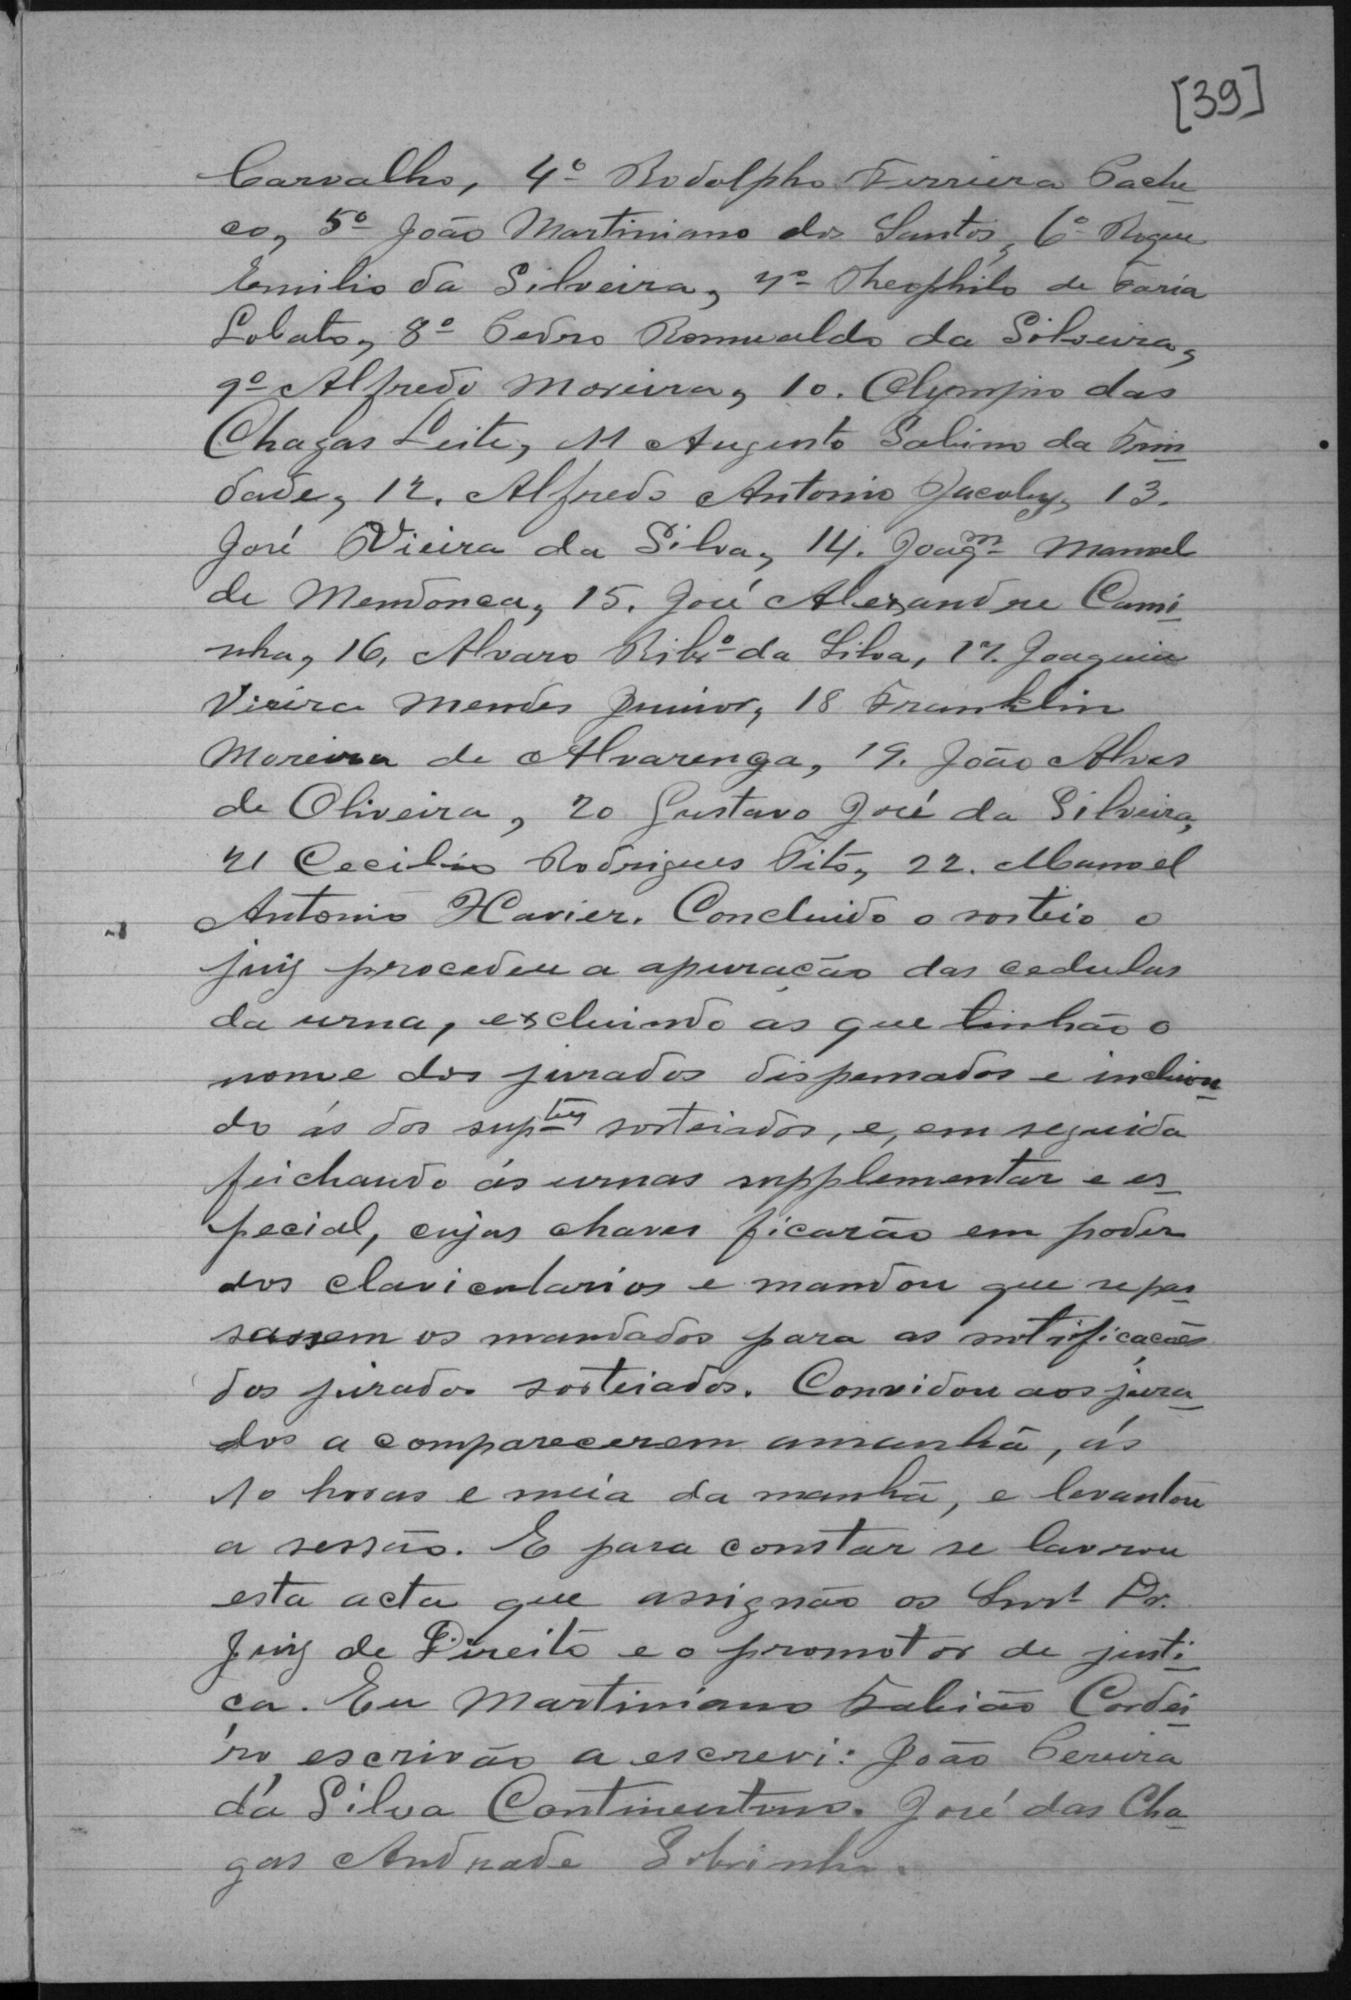 [39]
Carvalho, 4º Rodolpho Ferreira Pache
co, 5º João Martiniano dos Santos, 6º Roque
Emilio da Silveira, 7º Theophilo de Faria
Lobato, 8º Pedro Romualdo da Silveira,
9º Alfredo Moreira, 10. Olympio das
Chagas Leite, 11 Augusto Sabino da Trin
dade, 12. Alfredo Antonio Jacoby, 13.
José Vieira da Silva, 14. Joaqm Manoel
de Mendonca, 15. José Alexandre Cami
nha, 16, Alvaro Ribrº da Silva, 17. Joaquim
Vieira Mendes Junior, 18 Franklin
Moreira de Alvarenga, 19. João Alves
de Oliveira, 20 Gustavo José da Silveira,
21 Cecilio Rodrigues Tito, 22. Manoel
Antonio Xavier. Concluido o sorteio o
juiz procedeu a apuração das cedulas
da urna, excluindo as que tinhão o
nome dos jurados dispensados e incluin
do ás dos suptes sorteiados, e, em seguida
feichando ás urnas supplementar e es
pecial, cujas chaves ficarão em poder
dos clavicularios e mandou que se pas
sassem os mandados para as notificacões
dos jurados sorteiados. Convidou aos jura
dos a comparecerem amanhã, ás
10 horas e meia da manhã, e levantou
a sessão. E para constar se lavrou
esta acta que assignão os Dr.
Juiz de Direito e o promotor de justi
ca. Eu Martiniano Fabião Cordei
ro, escrivão a escrevi: João Pereira
da Silva Continentino. José das Cha
gas Andrade Sobrinho.